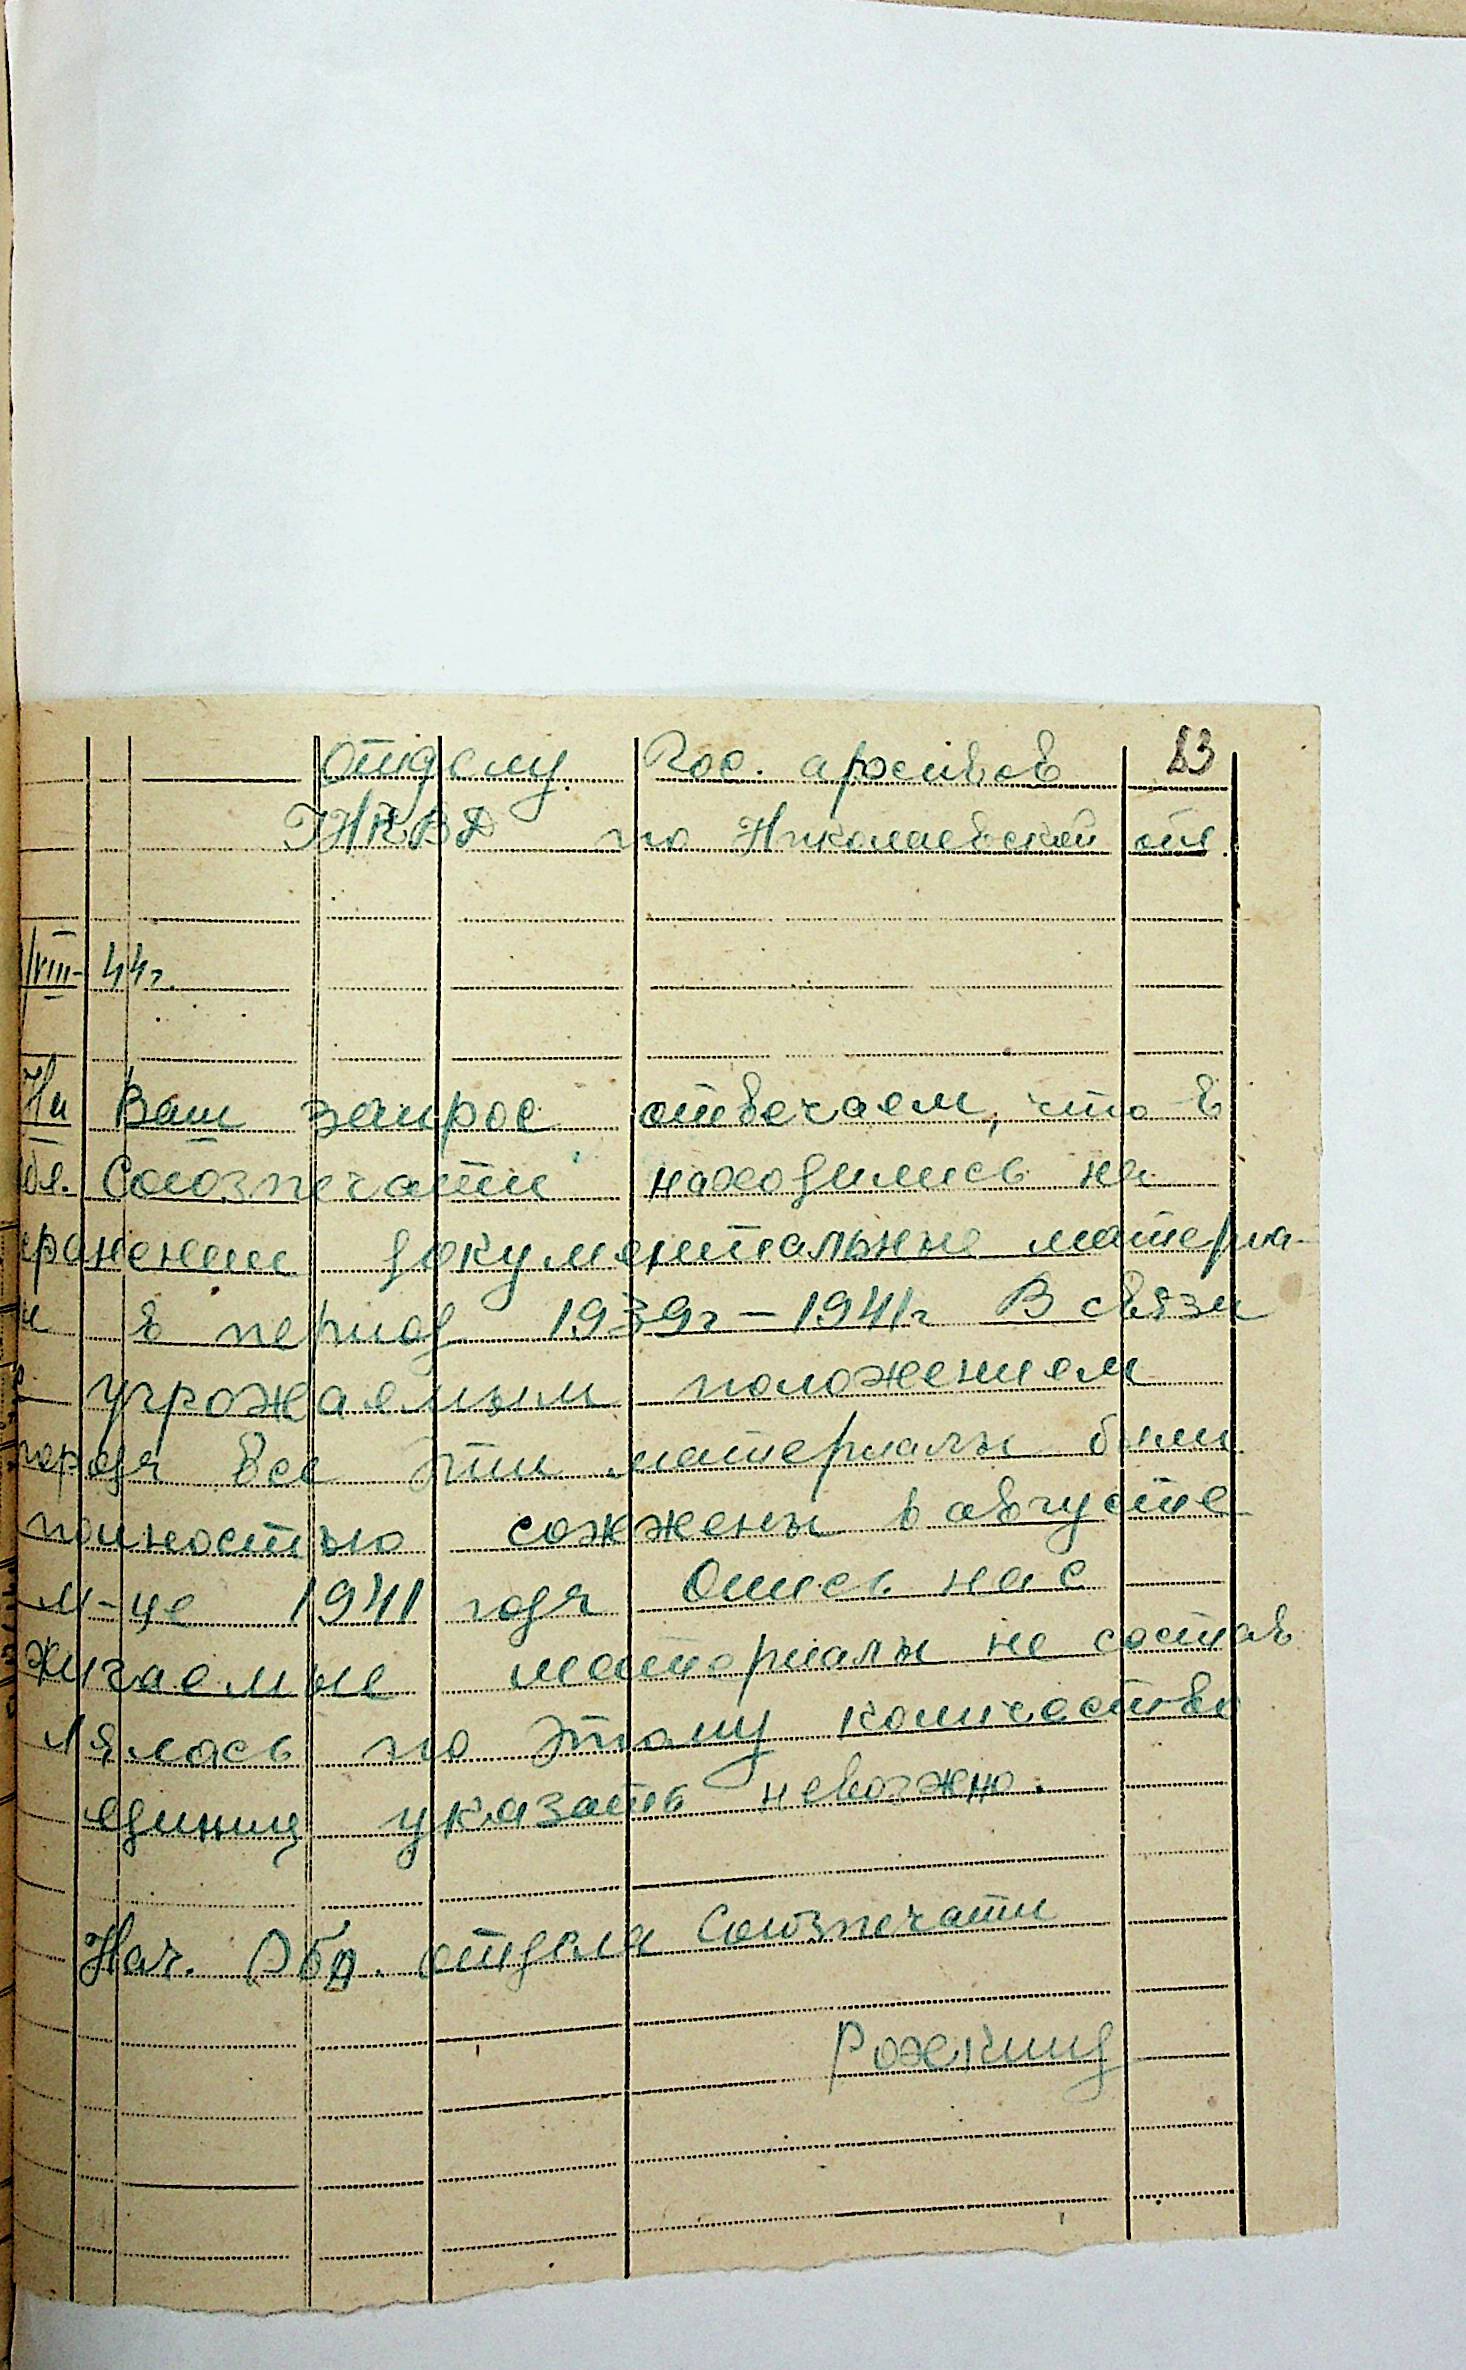 Отделу Гос. архивов 83
УНКВД по Николаевской обл.
/VIII- 44г.
На Ваш запрос отвечаем, что в
обл. Союзпечати находились на
хранении документальные материа-
и в период 1939г – 1941г В связи
угрожаемым положением
города все эти материалы были
полностью сожжены в августе
м-це 1941 года Опись на с
жигаемые материалы не состав
лялась по этому количество
единиц указать невозжно.
Нач. Обл. отдела Союзпечати